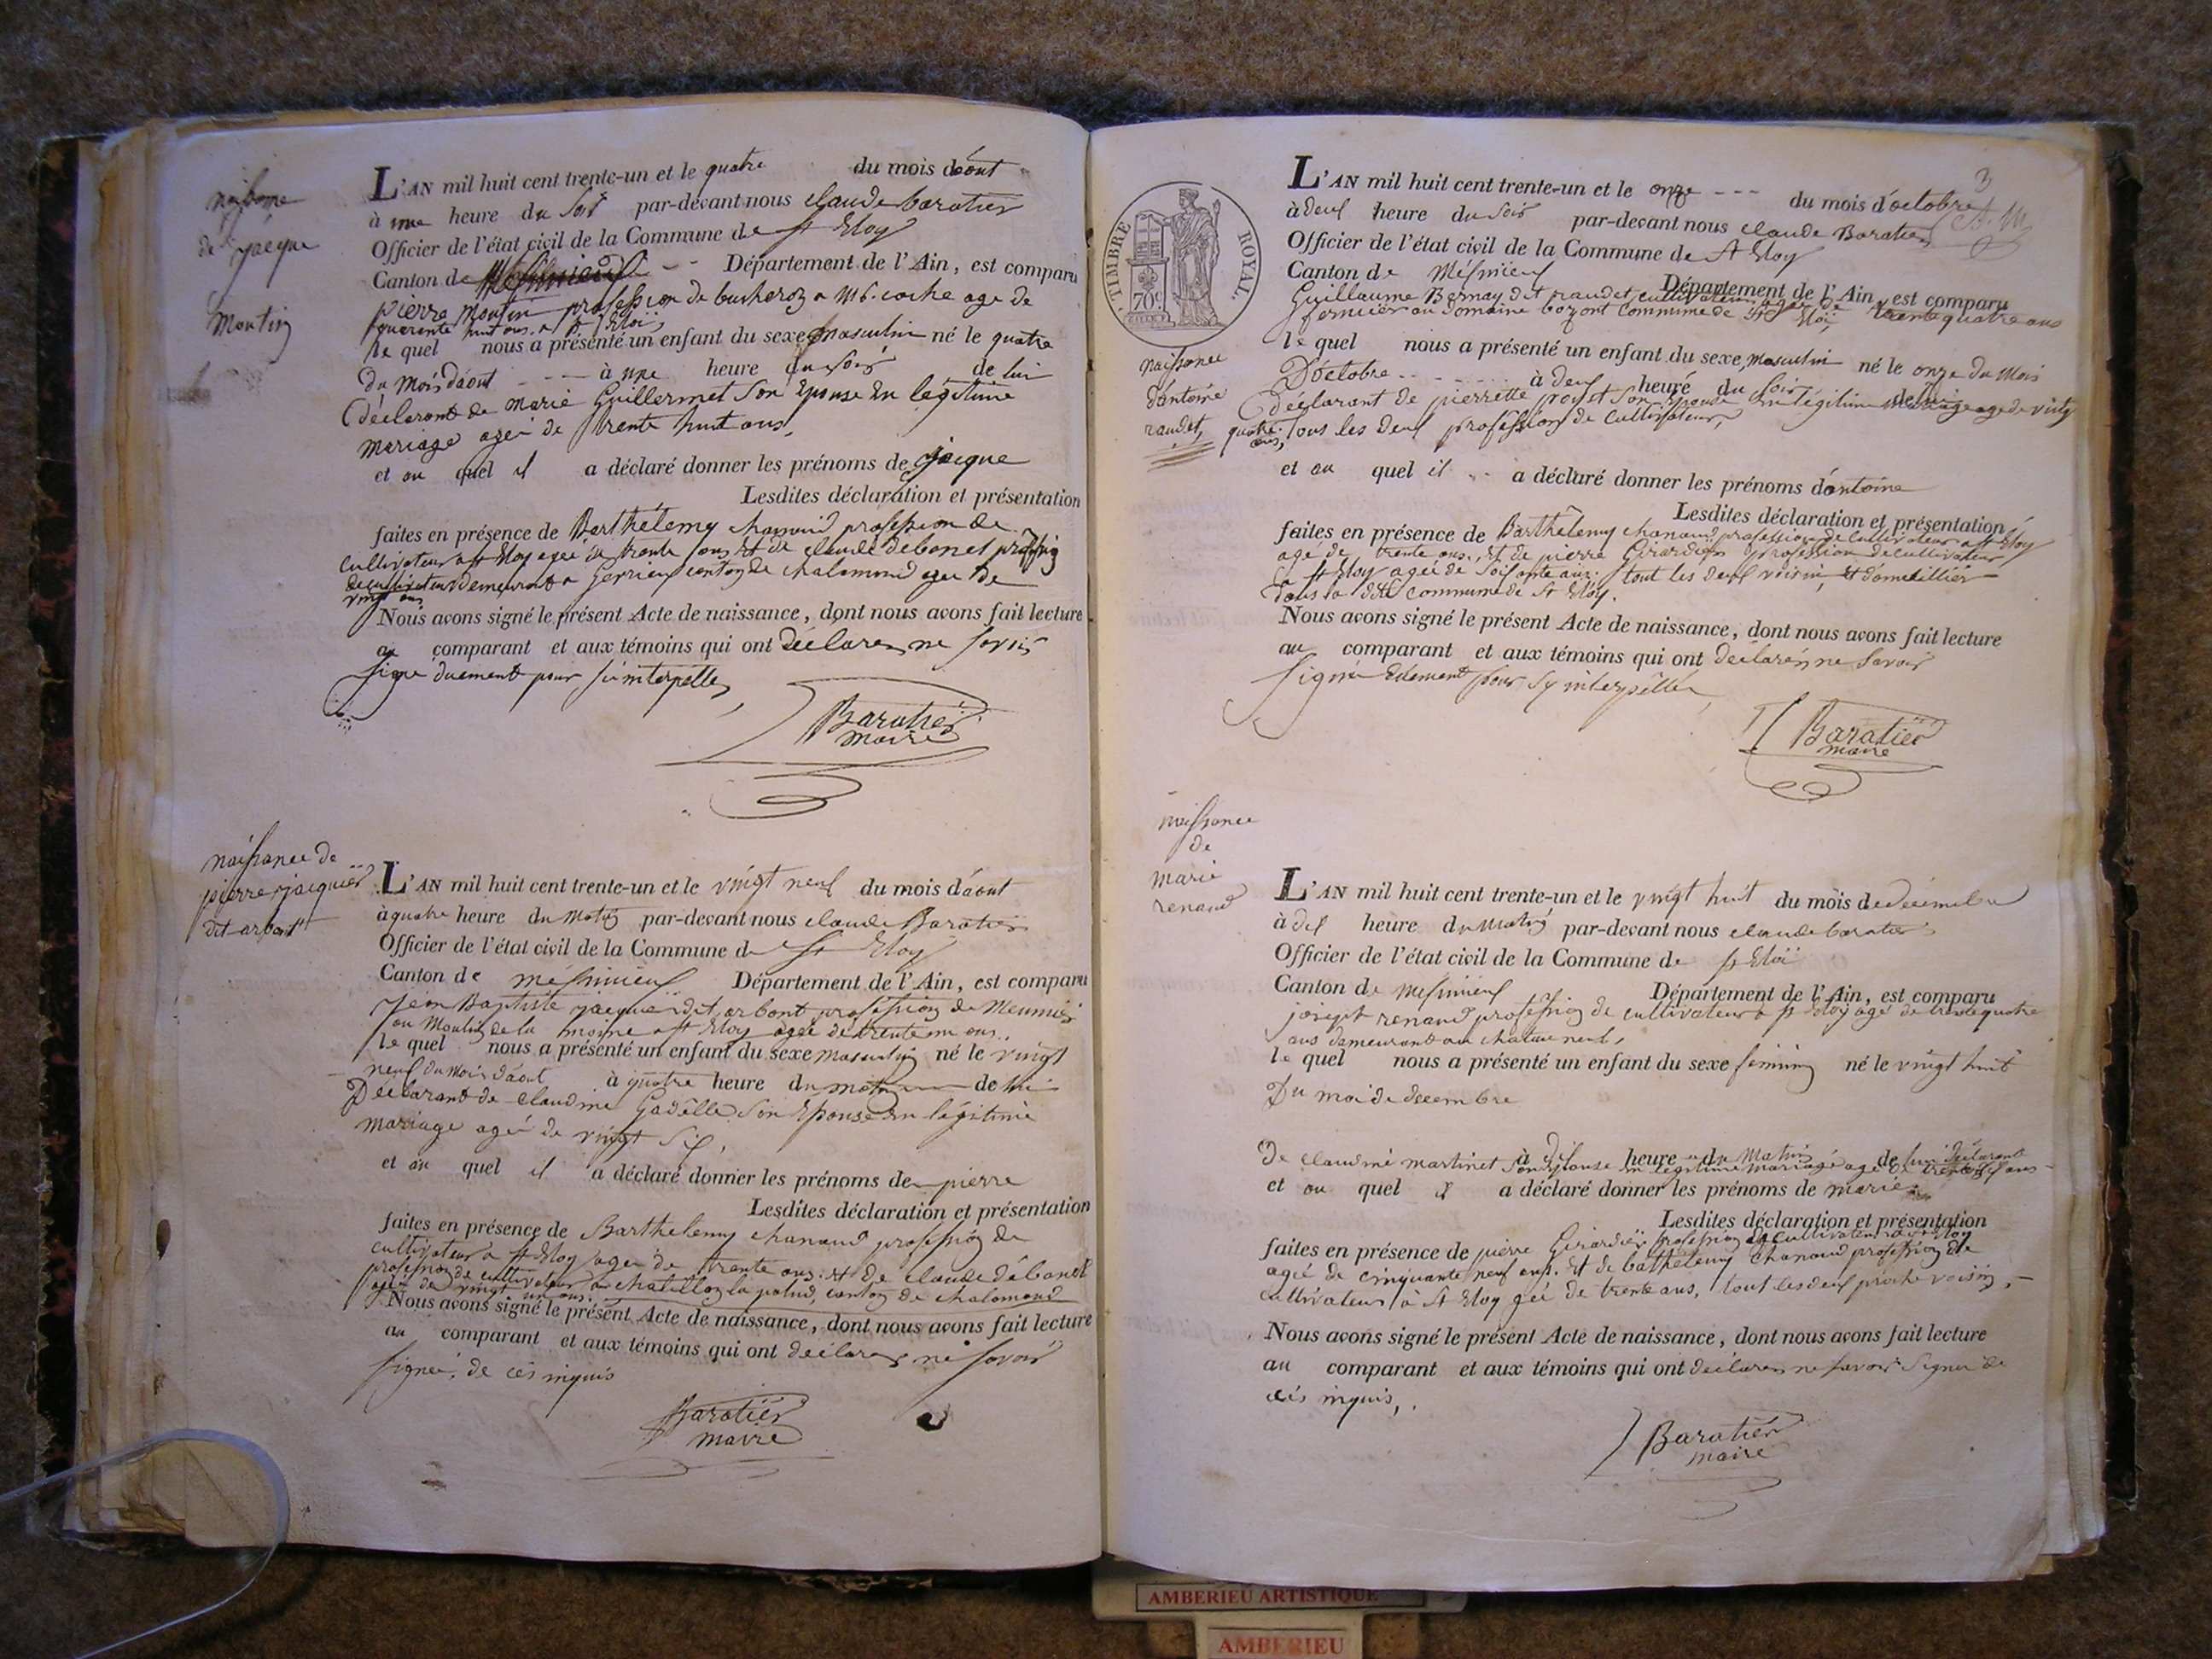 naissance
de jacque
Moutin
L'AN mil huit cent trente-un et le quatre du mois d'aout
à une heure du soir par-devant nous claude baratier
Officier de l'état civil de la Commune de st Eloy
Canton de Département de l'Ain, est comparu
pierre Moutin profession de age de
quarante huit ans. a st Eloï
le quel nous a présenté un enfant du sexe masculin né le quatre
du mois d'aout à une heure du soir de lui
déclarant de marie Guillermet son Epouse En legitime
mariage ageé de trente huit ans,
et au quel il a déclaré donner les prénoms de jacque
Lesdites déclaration et présentation
faites en présence de Barthélemy chanaud profession de
cultivateur a st Eloy ageé de trente ans Et de claude débonet profession
de cultivateur demeurant a Gerrieux canton de chalamond ageé de
vingt ans
Nous avons signé le présent Acte de naissance, dont nous avons fait lecture
au comparant et aux témoins qui ont déclarer ne savoir
signé duement pour interpelle,
Baratier
maire
naissance de
pierre jacquier
dit arbont
L'AN mil huit cent trente-un et le vingt neuf du mois d'aout
à quatre heure du matin par-devant nous claude Baratier
Officier de l'état civil de la Commune de st Eloy
Canton de méximieux Département de l'Ain, est comparu
Jean Baptiste jacquier dit arbont profession de Meunier
au Moulin de la moine a st Eloy ageé de trente un ans.
le quel nous a présenté un enfant du sexe masculin né le vingt
neuf du mois d'aout à quatre heure du matin de lui
Déclarant de claudine Gadelle son Epouse En légitime
mariage ageé de vingt six,
et au quel il a déclaré donner les prénoms de pierre
Lesdites déclaration et présentation
faites en présence de Barthelemy chanaud profession de
cultivateur a st Eloy ageé de trente ans. Et de claude débonet
profession de cultivateur a chatillon la palud, canton de chalamond
ageé de vingt un ans.
Nous avons signé le présent Acte de naissance, dont nous avons fait lecture
au comparant et aux témoins qui ont déclarer ne savoir
signer. de ces inquis
Baratier
maire
3
TIMBRE ROYAL.
70c
L'AN mil huit cent trente-un et le onze du mois d'octobre
à deux heure du soir par-devant nous claude Baratier
Officier de l'état civil de la Commune de st Eloy
Canton de Méximieux Département de l'Ain, est comparu
Guillaume Bernay dit raudet cultivateur agee de trente quatre ans
fermier au domaine bozont Commune de st Eloï
le quel nous a présenté un enfant du sexe masculin né le onze du mois
D'octobre à deux heure du soir de lui
naissance
d'antoine
raudet,
déclarant de pierrette son Epouse En légitime mariage age de vingt
quatre ans, tous les deux profession de cultivateur,
et au quel il a déclaré donner les prénoms d'antoine
Lesdites déclaration et présentation
faites en présence de Barthelemy chanaud profession de cultivateur a st Eloy
age de trente ans. Et de pierre Girardier profession de cultivateur
a st Eloy ageé de soisante ans. tout les deux voisin, et domicillier
dans la dite commune de st Eloy.
Nous avons signé le présent Acte de naissance, dont nous avons fait lecture
au comparant et aux témoins qui ont declarer ne savoir
signer duement pour sy interpeller
Baratier
maire
naissance
de
marie
renaud
L'AN mil huit cent trente-un et le vingt huit du mois de decembre
à dix heure du matin par-devant nous claude baratier
Officier de l'état civil de la Commune de st Eloï
Canton de meximieux Département de l'Ain, est comparu
joseph renaud profession de cultivateur a st Eloy age de trente quatre
ans demeurant au chateau neuf,
le quel nous a présenté un enfant du sexe féminin né le vingt huit
Du moi de decembre
à dix heure du Matin de lui déclarant
De claudine martinet son Epouse en légitime mariage age de trente six ans
et au quel il a déclaré donner les prénoms de marie
Lesdites déclaration et présentation
faites en présence de pierre Girardier profession de cultivateur a st Eloy
ageé de cinquante neuf ans. Et de bathelemy chanaud profession de
cultivateur à st Eloy geé de trente ans, tout les deux proche voisin,
Nous avons signé le présent Acte de naissance, dont nous avons fait lecture
au comparant et aux témoins qui ont declarer ne savoir signer de
cés inquis,
Baratier
maire
AMBERIEU ARTISTIQUE
AMBERIEU